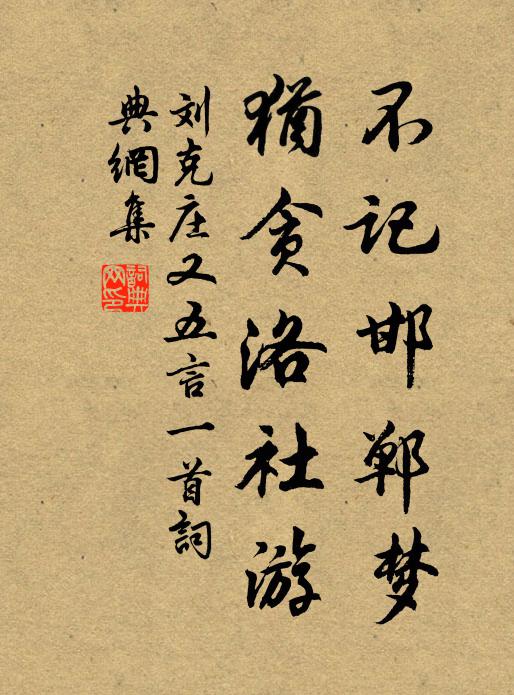 不记邯郸梦
犹贪洛社游
刘克庄又五言一首詞
典網集
詞典網印